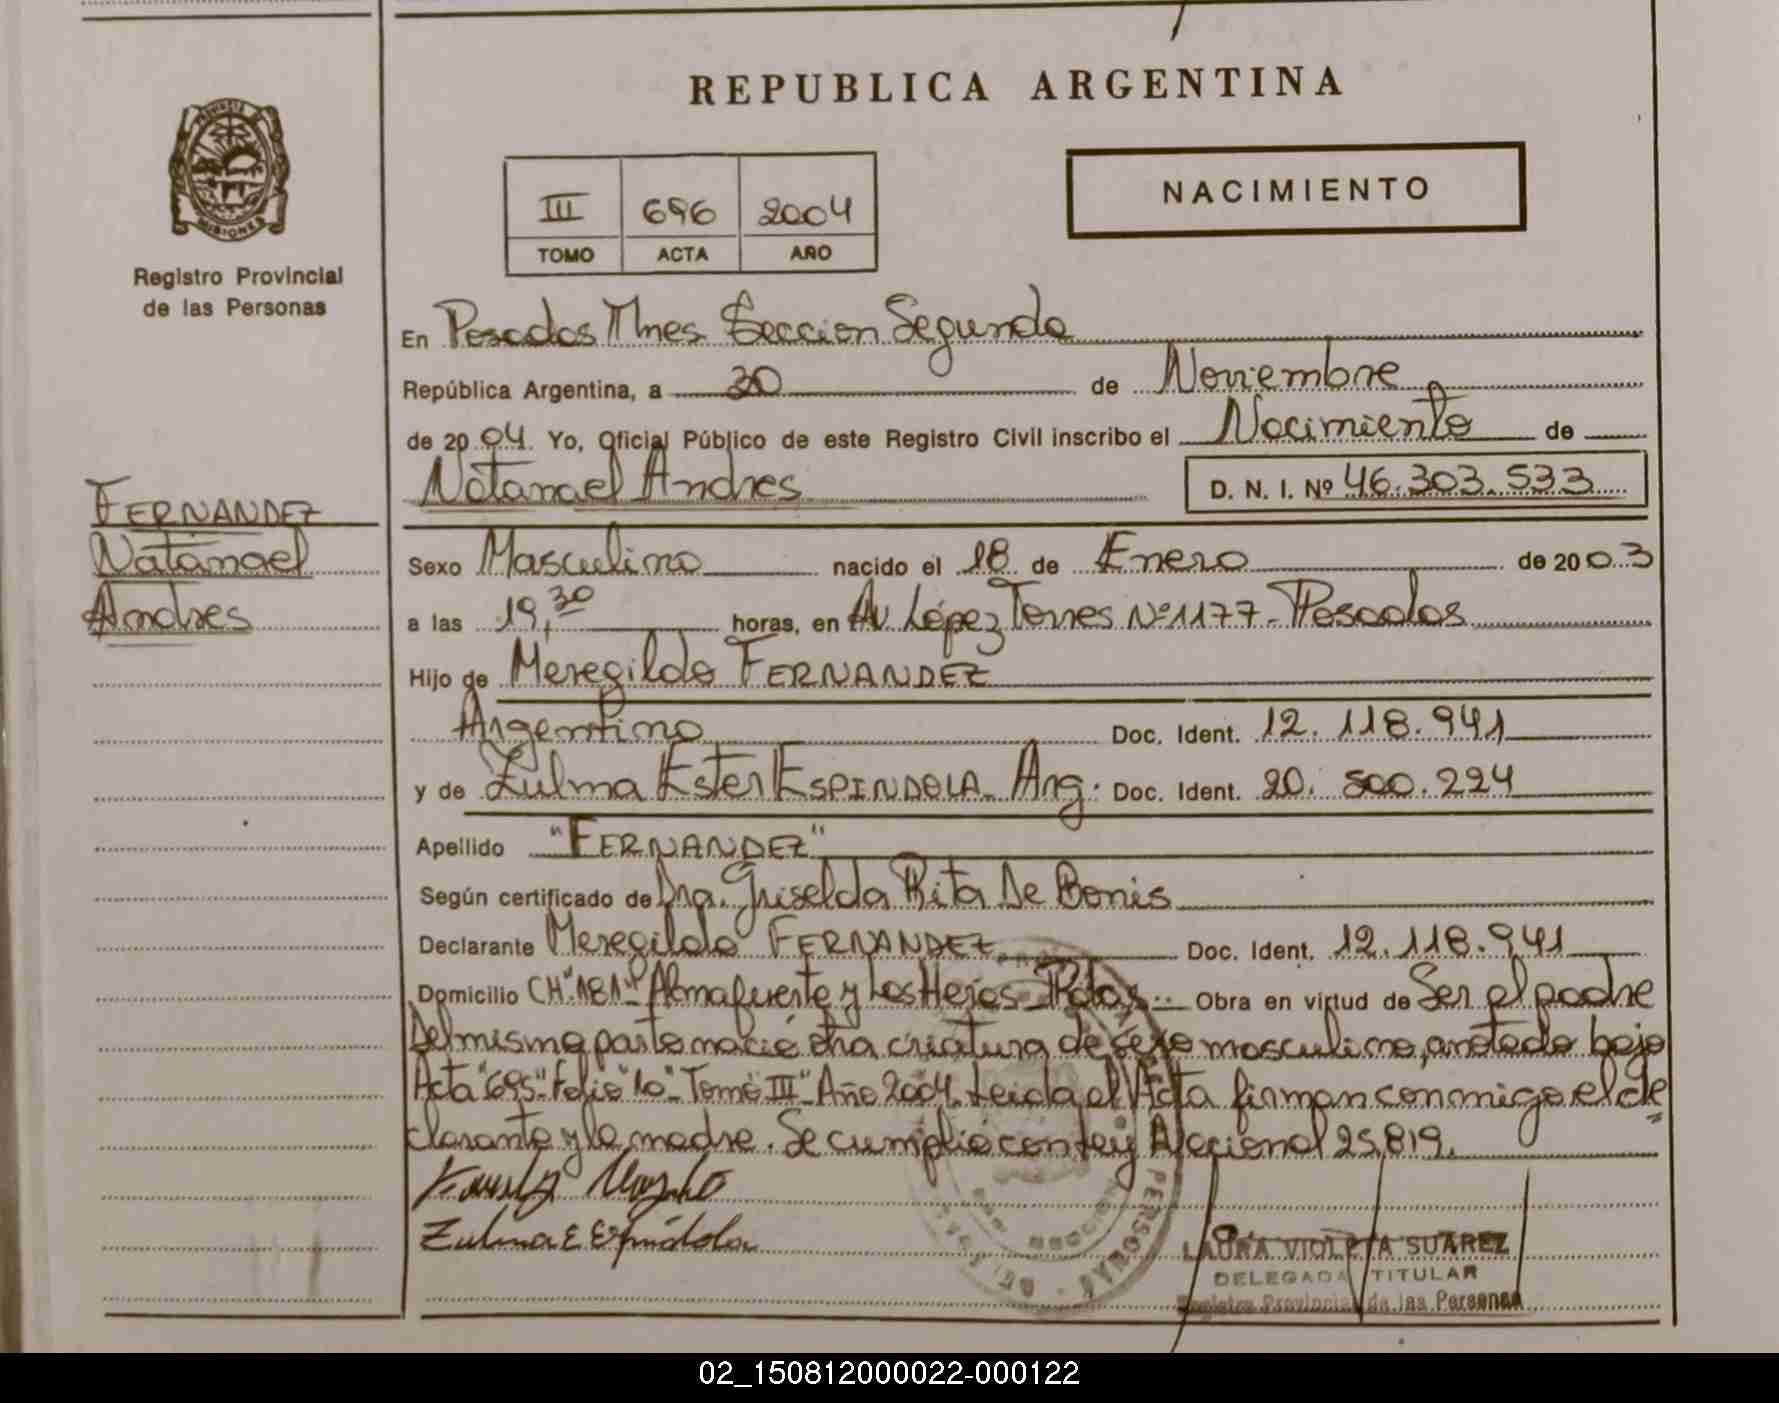 REPUBLICA ARGENTINA
NACIMIENTO
III 696 2004
TOMO ACTA AÑO
PROVINCIA DE
MISIONES
Registro Provincial
de las Personas
FERNANDEZ
Natanael
Andres
En Posadas Mnes Seccion Segunda
República Argentina, a 30 de Noviembre
de 2004. Yo, Oficial Público de este Registro Civil inscribo el Nacimiento de
Natanael Andres D. N. I. Nº 46.303.533
Sexo Masculino nacido el 18 de Enero de 2003
a las 19,30 horas, en Av López Torres Nº 1177 - Posadas
Hijo de Meregildo FERNANDEZ
Argentino Doc. Ident. 12.118.941
y de Zulma Ester ESPINDOLA - Arg. Doc. Ident. 20.500.224
Apellido "FERNANDEZ"
Según certificado de Dra. Griselda Rita De Bonis
Declarante Meregildo FERNANDEZ Doc. Ident. 12.118.941
Domicilio CH "181" - Almafuerte y Los Hejos - Pdas. Obra en virtud de Ser el padre
Del mismo parto nació otra criatura de sexo masculino, anotado bajo
Acta "695" - Folio "10" - Tomo III" - Año 2004. Leida el Acta firman conmigo el de
clarante y la madre. Se cumplió con Ley Nacional 25.819.
Zulma E Espíndola
LAURA VIOLETA SUAREZ
DELEGADA TITULAR
Registro Provincial de las Personas
PERSONAS
02_150812000022-000122